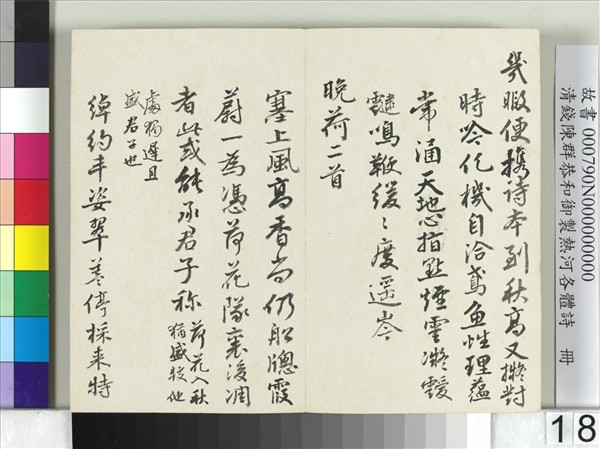 幾暇便攜詩本到秋高又擬對
時吟化機自洽鳶魚性理蘊
常涵天地心指點煙雲凝靉
靆鳴鞭緩〻度遥岑
晚荷二首
塞上風高香尚仍船牕霞
蔚一為憑荷花隊裏後凋
者此或能承君子称
荷花入秋
猶盛較他
處獨遲且
盛君子也
綽約丰姿翠蓋停採来特
故書 000790N000000000
清錢陳群恭和御製熱河各體詩 冊
18